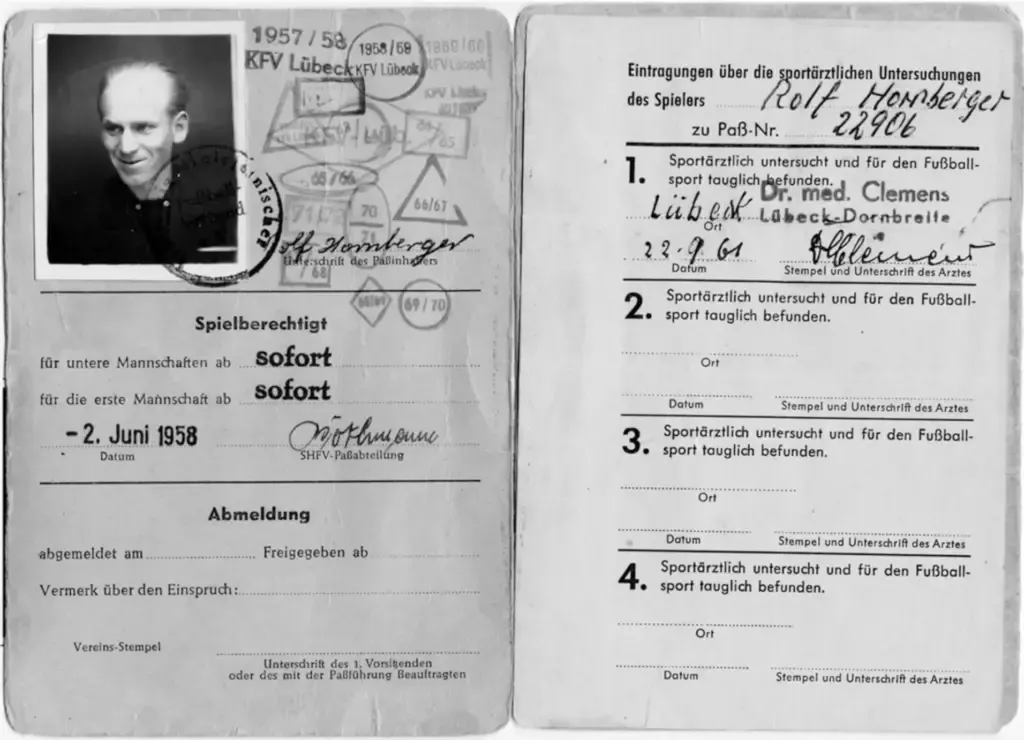 1957/58
KFV Lübeck
1958/59
KFV Lübeck
1959/60
KFV Lübeck
64/65
65/66
66/67
71/72
70
71
/68
68/69
69/70
olf Hornberger
Unterschrift des Paßinhabers
Spielberechtigt
für untere Mannschaften ab sofort
für die erste Mannschaft ab sofort
-2. Juni 1958
Datum
SHFV-Paßabteilung
Abmeldung
abgemeldet am Freigegeben ab
Vermerk über den Einspruch:
Vereins-Stempel
Unterschrift des 1. Vorsitzenden
oder des mit der Paßführung Beauftragten
Eintragungen über die sportärztlichen Untersuchungen
des Spielers Rolf Hornberger
zu Paß-Nr. 22906
1. Sportärztlich untersucht und für den Fußball-
sport tauglich befunden.
Dr. med. Clemens
Lübeck Lübeck-Dornbreite
Ort
22.9.61 Clemens
Datum Stempel und Unterschrift des Arztes
2. Sportärztlich untersucht und für den Fußball-
sport tauglich befunden.
Ort
Datum Stempel und Unterschrift des Arztes
3. Sportärztlich untersucht und für den Fußball-
sport tauglich befunden.
Ort
Datum Stempel und Unterschrift des Arztes
4. Sportärztlich untersucht und für den Fußball-
sport tauglich befunden.
Ort
Datum Stempel und Unterschrift des Arztes